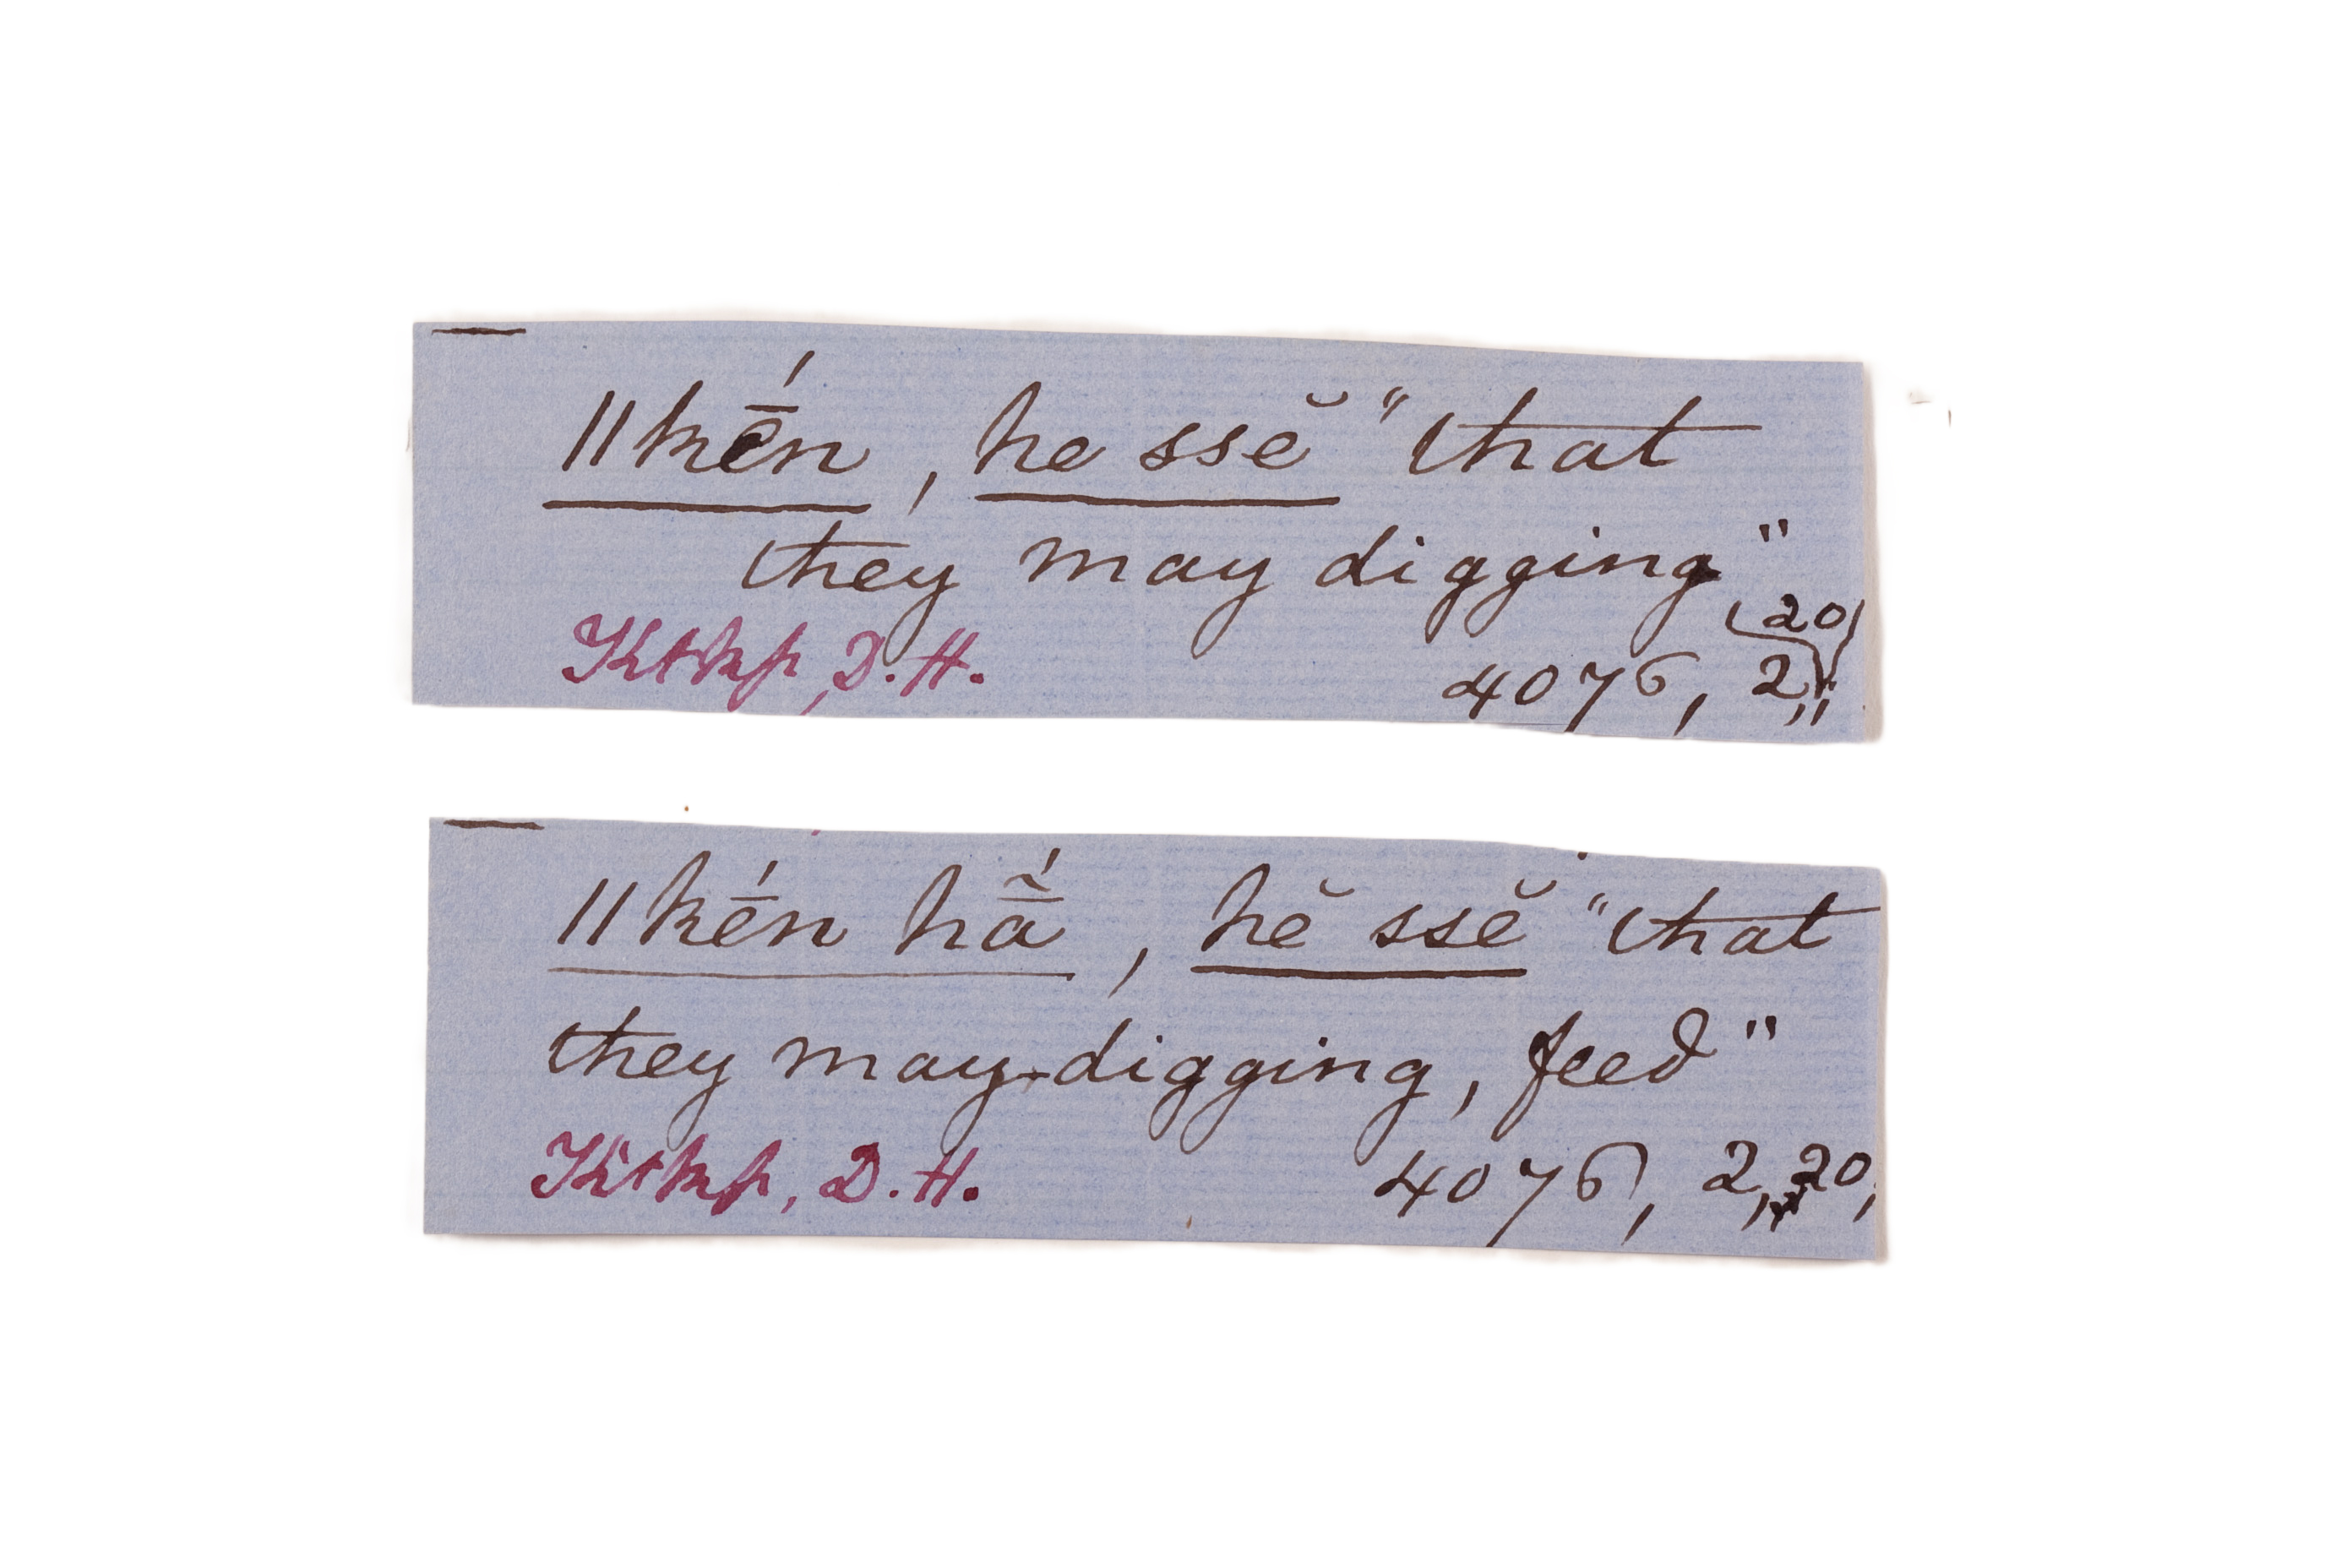 ǁkḗn, he ssĕ "that
they may digging"
(20)
Ktkkp, D.H. 4076, 2,,
ǁkḗn hā̃́, hĕ ssĕ "that
they may digging, feed"
Ktkkp, D.H. 4076, 2, 20,